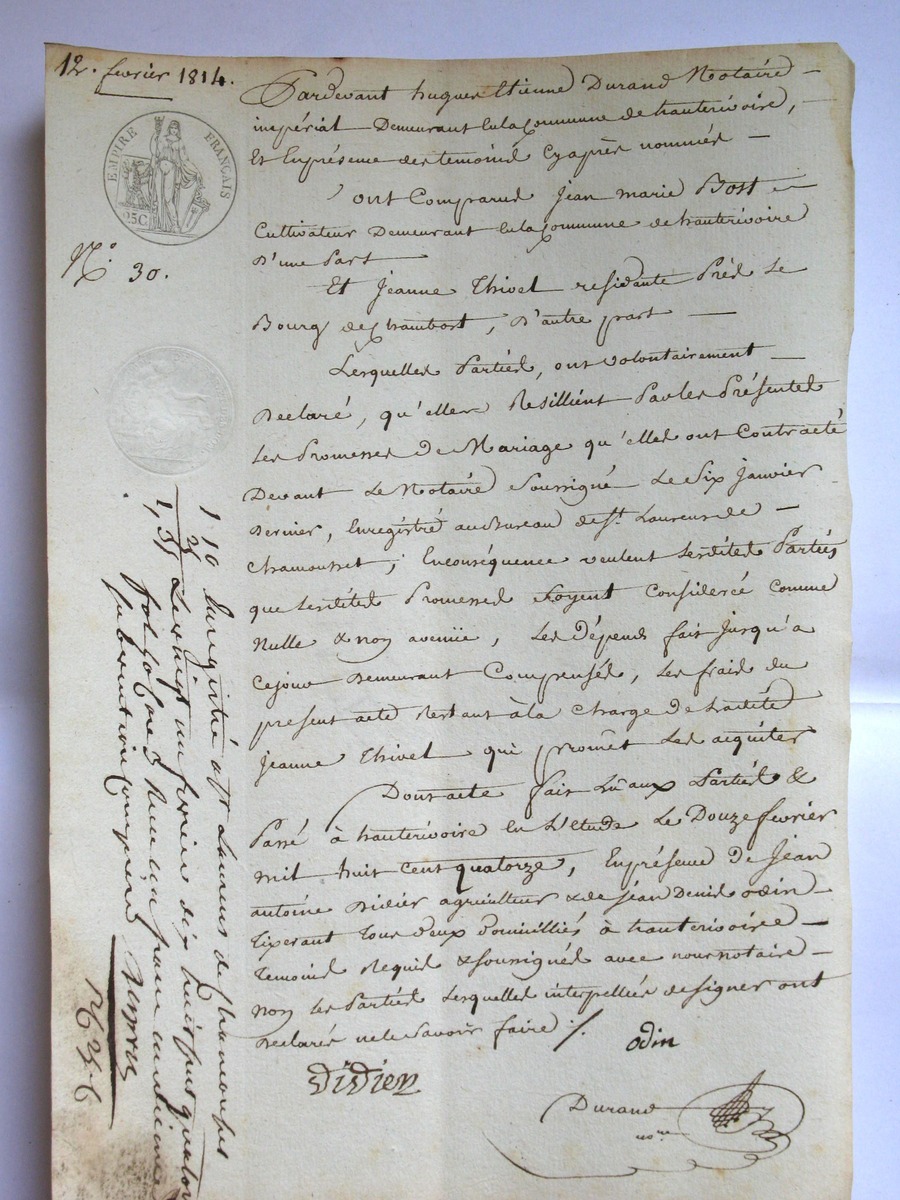 12. fevrier 1814.
EMPIRE FRANÇAIS
25C
N.° 30.
Pardevant hugues Etienne Durand Notaire
impérial Demeurant en la Commune de hauterivoire,
Et En présence des temoins Cyaprès nommés
ont Comparus Jean marie Bost
Cultivateur Demeurant en la Commune de hauterivoire
D'une Part
Et Jeanne Thivel residante Près Le
Bourg de Chambost, D'autre part
Lesquelles Parties, ont volontairement
Declaré, qu'elles Resilliént Par les Présentes
Les Promesses de Mariage qu'elles ont Contracté
Devant Le Notaire Soussigné Le Six Janvier
Dernier, Enregistré au Bureau de St. Laurens de
Chamousset; En conséquence veulent Lesdites Parties
que Lesdites Promesses soyent Considerée Comme
Nulle & non avenüe, Les Dépends fait Jusqu'a
Cejour Demeurant Compensés, Les frais du
présent acte Restant à la Charge de Ladite
Jeanne Thivel qui promêt Les acquiter
Dont acte fait Lû aux Parties &
Passé à hauterivoire En L'Etude Le Douze fevrier
mil huit Cent quatorze, En présence de Jean
antoine Didier agriculteur & de Jean Denis Odin
Tixerant Tous deux Domicilliés à hauterivoire
Temoins Requis & soussignés avec nous notaire
non Les Parties Lesquelles interpellées de signer ont
Declarés ne le Savoir faire ./.
odin
Didier
Durand
nore
1 10 Enregistré a St Laurens de chamousset
Le vingt un fevrier dix huit cent quator
1,31 fol 30 Case Reçu un franc
subvention comprise